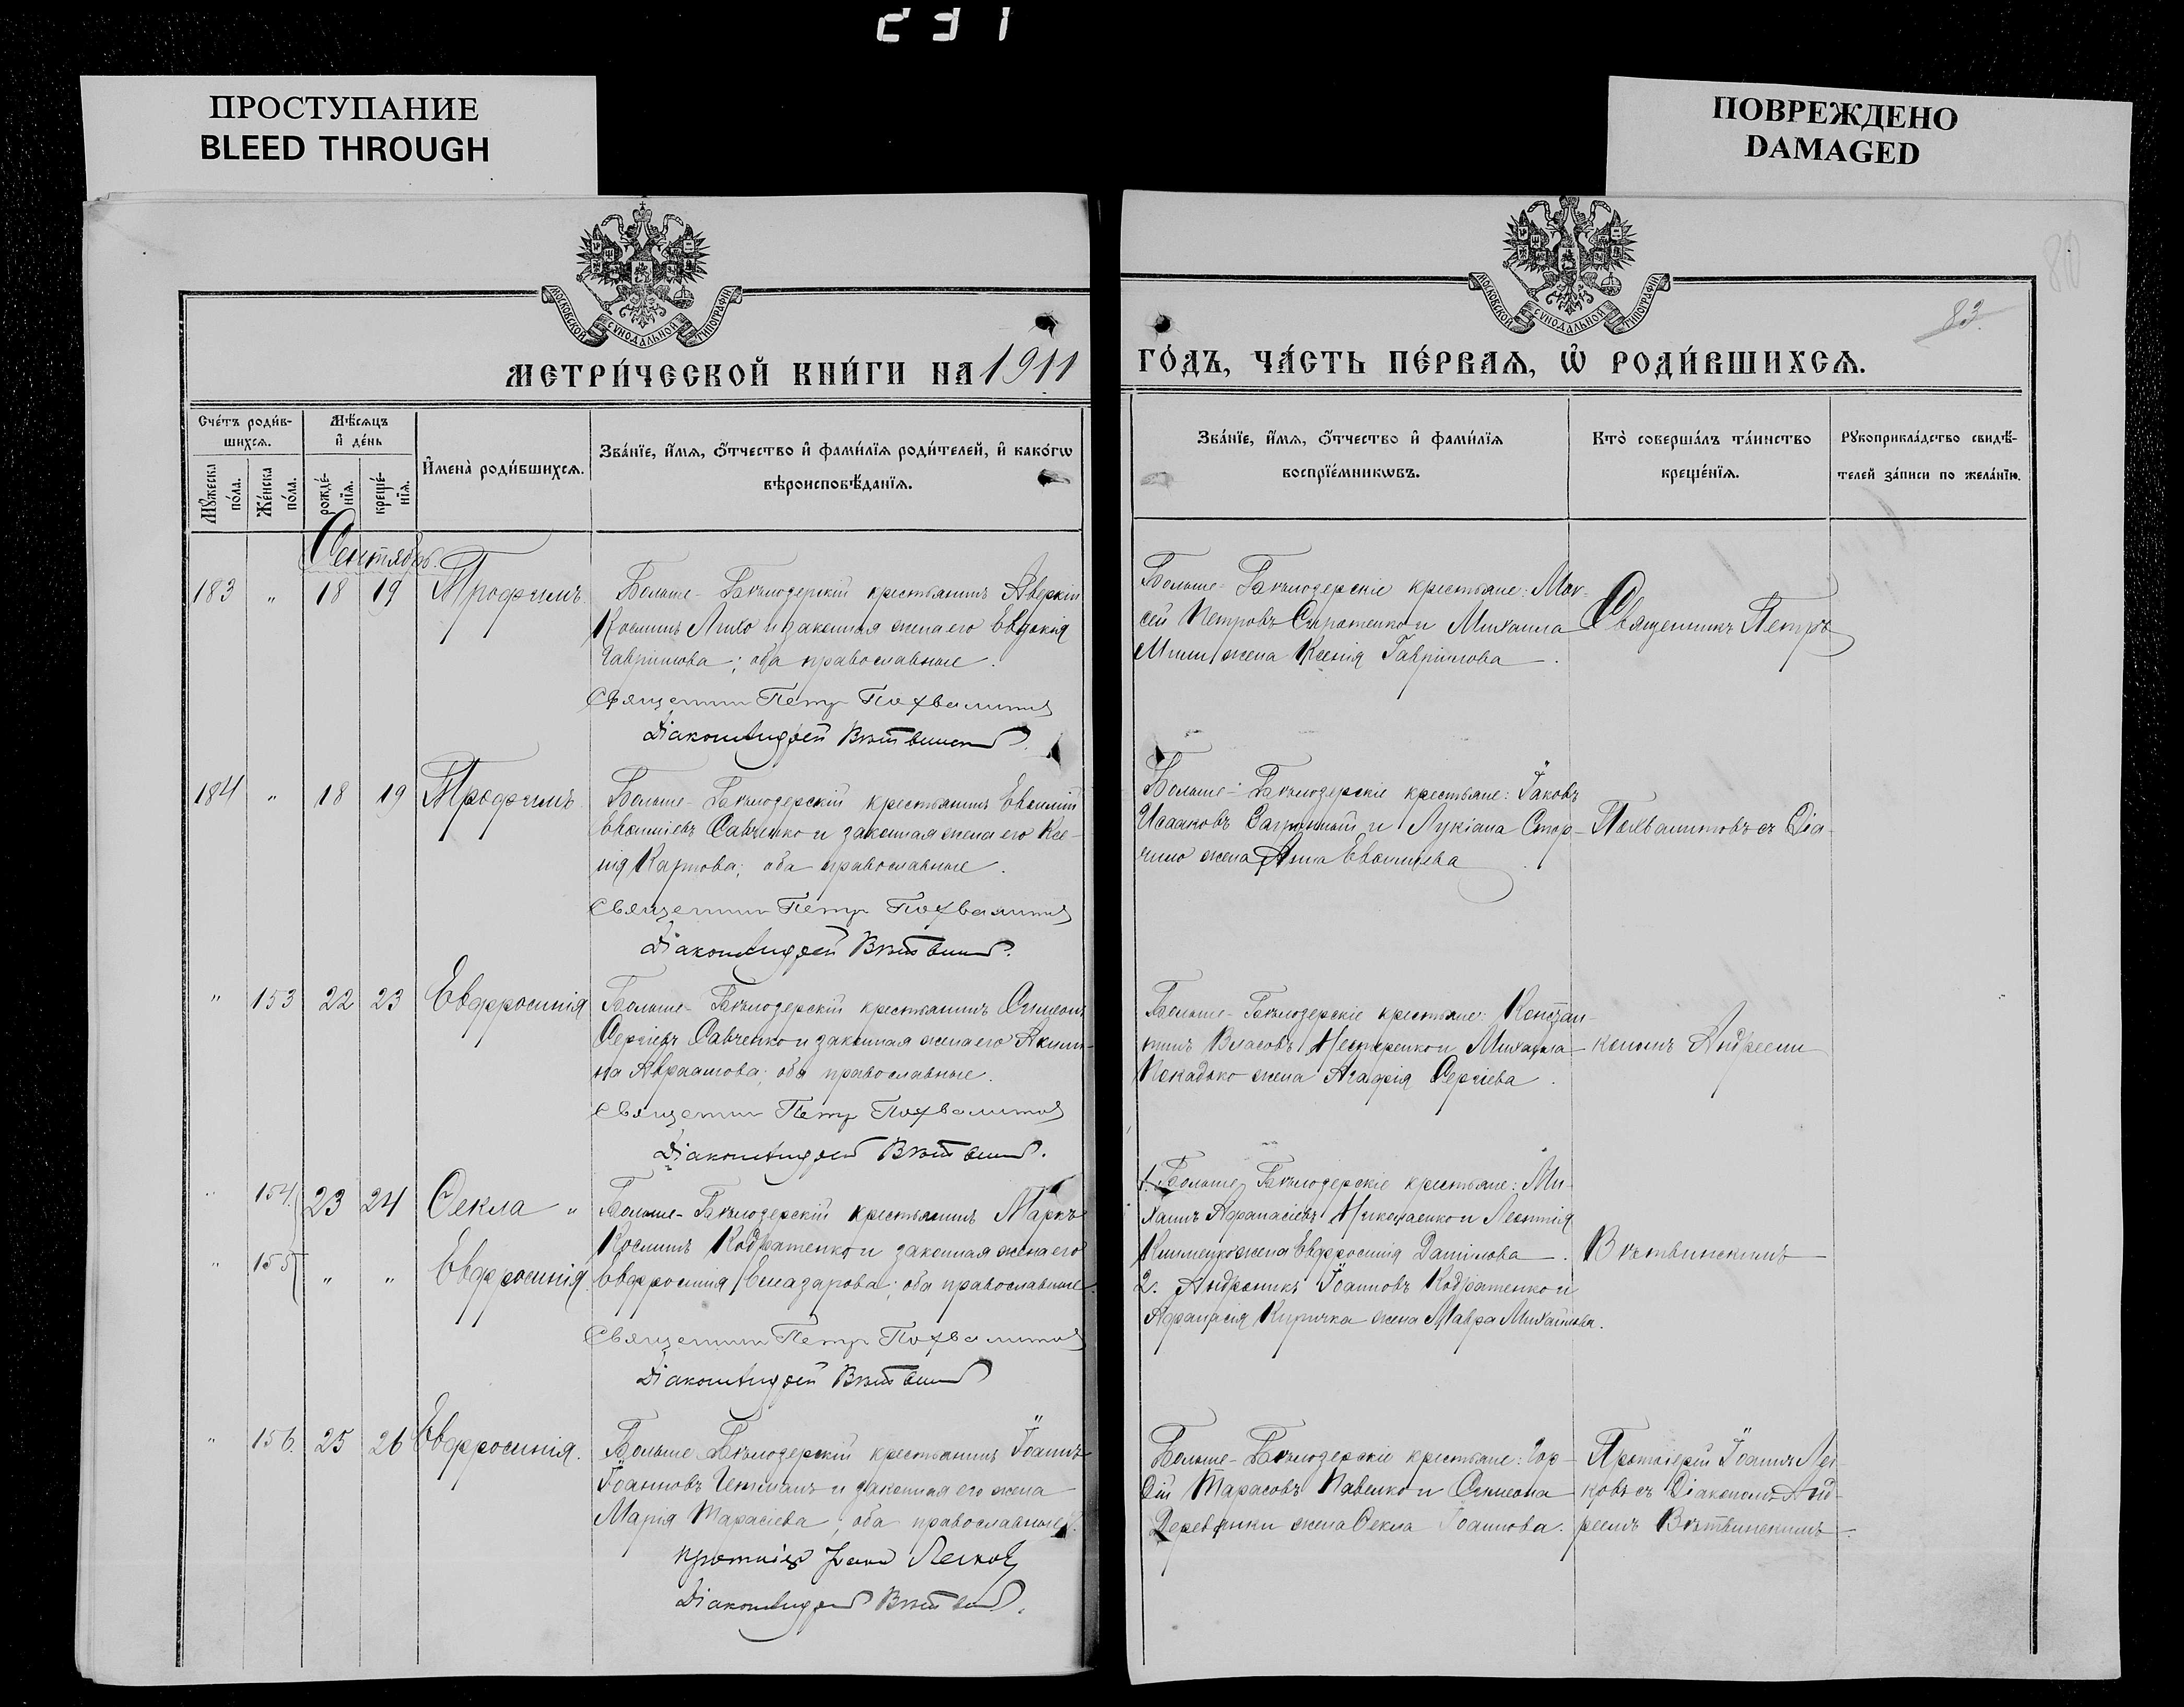 231
ПРОСТУПАНИЕ
BLEED THROUGH
ПОВРЕЖДЕНО
DAMAGED
МОСКОВСКОЙ СѴНОДАЛЬНОЙ ТИПОГРАФІИ
МОСКОВСКОЙ СѴНОДАЛЬНОЙ ТИПОГРАФІИ
80
83.
МЕТРИ́ЧЕСКОЙ КНИ́ГИ НА 1911
ГО́ДЪ, ЧА́СТЬ ПЕ́РВАѦ, Ѡ҆ РОДИ́ВШИХСѦ.
Сче́тъ роди́в-
шихсѧ.
Мѣ́сѧцъ
и҆ де́нь
Мꙋ́жеска по́ла.
Же́нска по́ла.
рожде́-
нїѧ.
креще́-
нїѧ.
И҆мена̀ роди́вшихсѧ.
Зва́нїе, и҆́мѧ, ѻ҆́тчество и҆ фами́лїѧ роди́телей, и҆ како́гѡ
вѣроисповѣ́данїѧ.
Зва́нїе, и҆́мѧ, ѻ҆́тчество и҆ фами́лїѧ
воспрїе́мникѡвъ.
Кто̀ соверша́лъ та́инство
креще́нїѧ.
Рꙋкоприкла́дство свидѣ́-
телей за́писи по жела́нїю.
Сентябрь.
183 " 18 19 Трофимъ
Больше-Бѣлозерскій крестьянинъ Аверкій
Косминъ и законная жена его Евдокія
Гаврiилова; оба православные.
Священникъ Петръ Похвалитовъ
Діаконъ Андрей Вѣтвинскій.
Больше-Бѣлозерскіе крестьяне: Мои-
сей Петровъ Сиротенко и Михаила
жена Ксенія Гавріилова.
Священникъ Петръ
184 " 18 19 Трофимъ
Больше-Бѣлозерскій крестьянинъ Евсилій
Савченко и законная жена его Ксе-
нія Карпова; оба православные.
Священникъ Петръ Похвалитовъ
Діаконъ Андрей Вѣтвинскій.
Больше-Бѣлозерскіе крестьяне: Іаковъ
Исааковъ и Лукіана
жена Анна
Похвалитовъ съ Діа-
" 153 22 23 Евфросинія
Больше-Бѣлозерскій крестьянинъ Симеонъ
Сергіевъ Савченко и законная жена его Акили-
на Авраамова; оба православные.
Священникъ Петръ Похвалитовъ
Діаконъ Андрей Вѣтвинскій.
Больше-Бѣлозерскіе крестьяне: Констан-
тинъ Власовъ Нестеренко и Михаила
жена Агафія Сергіева.
кономъ Андреемъ
" 154. 23 24 Ѳекла "
" 155 " " Евфросинія.
Больше-Бѣлозерскій крестьянинъ Маркъ
Косминъ Кодратенко и законная жена его
Евфросинія Елеазарова; оба православные.
Священникъ Петръ Похвалитовъ
Діаконъ Андрей Вѣтвинскій
1. Больше-Бѣлозерскіе крестьяне: Ми-
хаилъ Афанасіевъ Николаенко и Леонтія
Клименко жена Евфросинія Даніилова.
2. Андроникъ Іоанновъ Кодратенко и
Афанасія Киричка жена Мавра Михайлова.
Вѣтвинскимъ
" 156. 25 26 Евфросинія.
Больше-Бѣлозерскій крестьянинъ Іоаннъ
Іоанновъ и законная его жена
Марія Тарасіева; оба православные.
Протоіерей Іоаннъ Легковъ
Діаконъ Андрей Вѣтвинскій.
Больше-Бѣлозерскіе крестьяне: Гор-
дій Тарасовъ Павенко и Симеона
Деревянки жена Ѳекла Іоаннова.
Протоіерей Іоаннъ Лег-
ковъ съ Діакономъ Анд-
реемъ Вѣтвинскимъ.